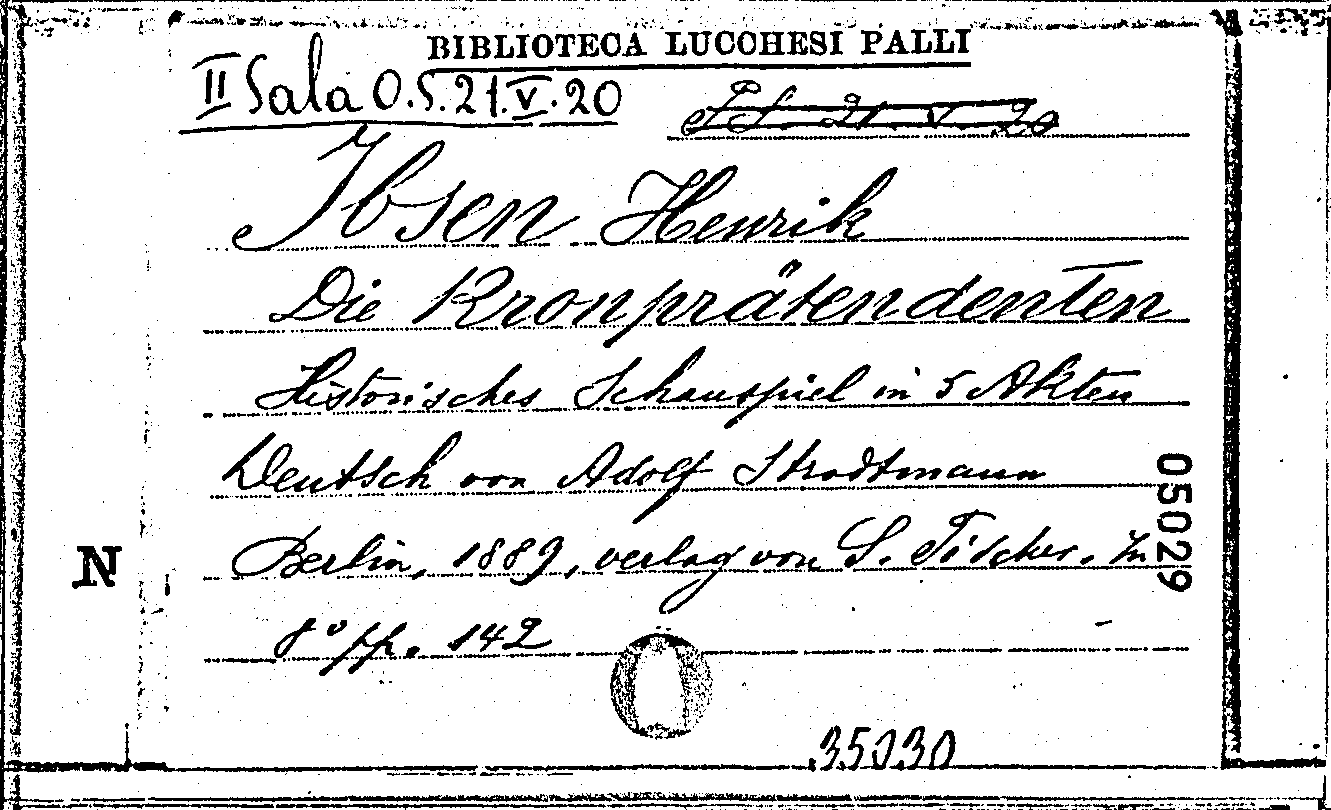 BIBLIOTECA LUCCHESI PALLI
II Sala O.S. 21.V.20
21. V. 20
Ibsen Henrik
Die Kronprätendenten
Historisches Schauspiel in 5 Akten
Deutsch von Adolf Strodtmann
Berlin, 1889, verlag von S. Fischer. In
8° pp. 142
N
05029
35030